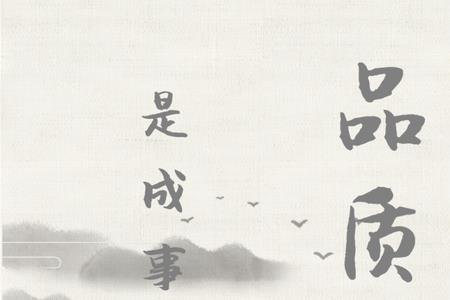 品质
是成事